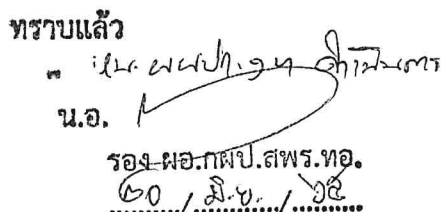 ทราบแล้ว
- ให้ ผผปก.๑ฯ ดำเนินการ
น.อ.
รอง ผอ.กผป.สพร.ทอ.
๒๐ / มิ.ย. / ๖๕